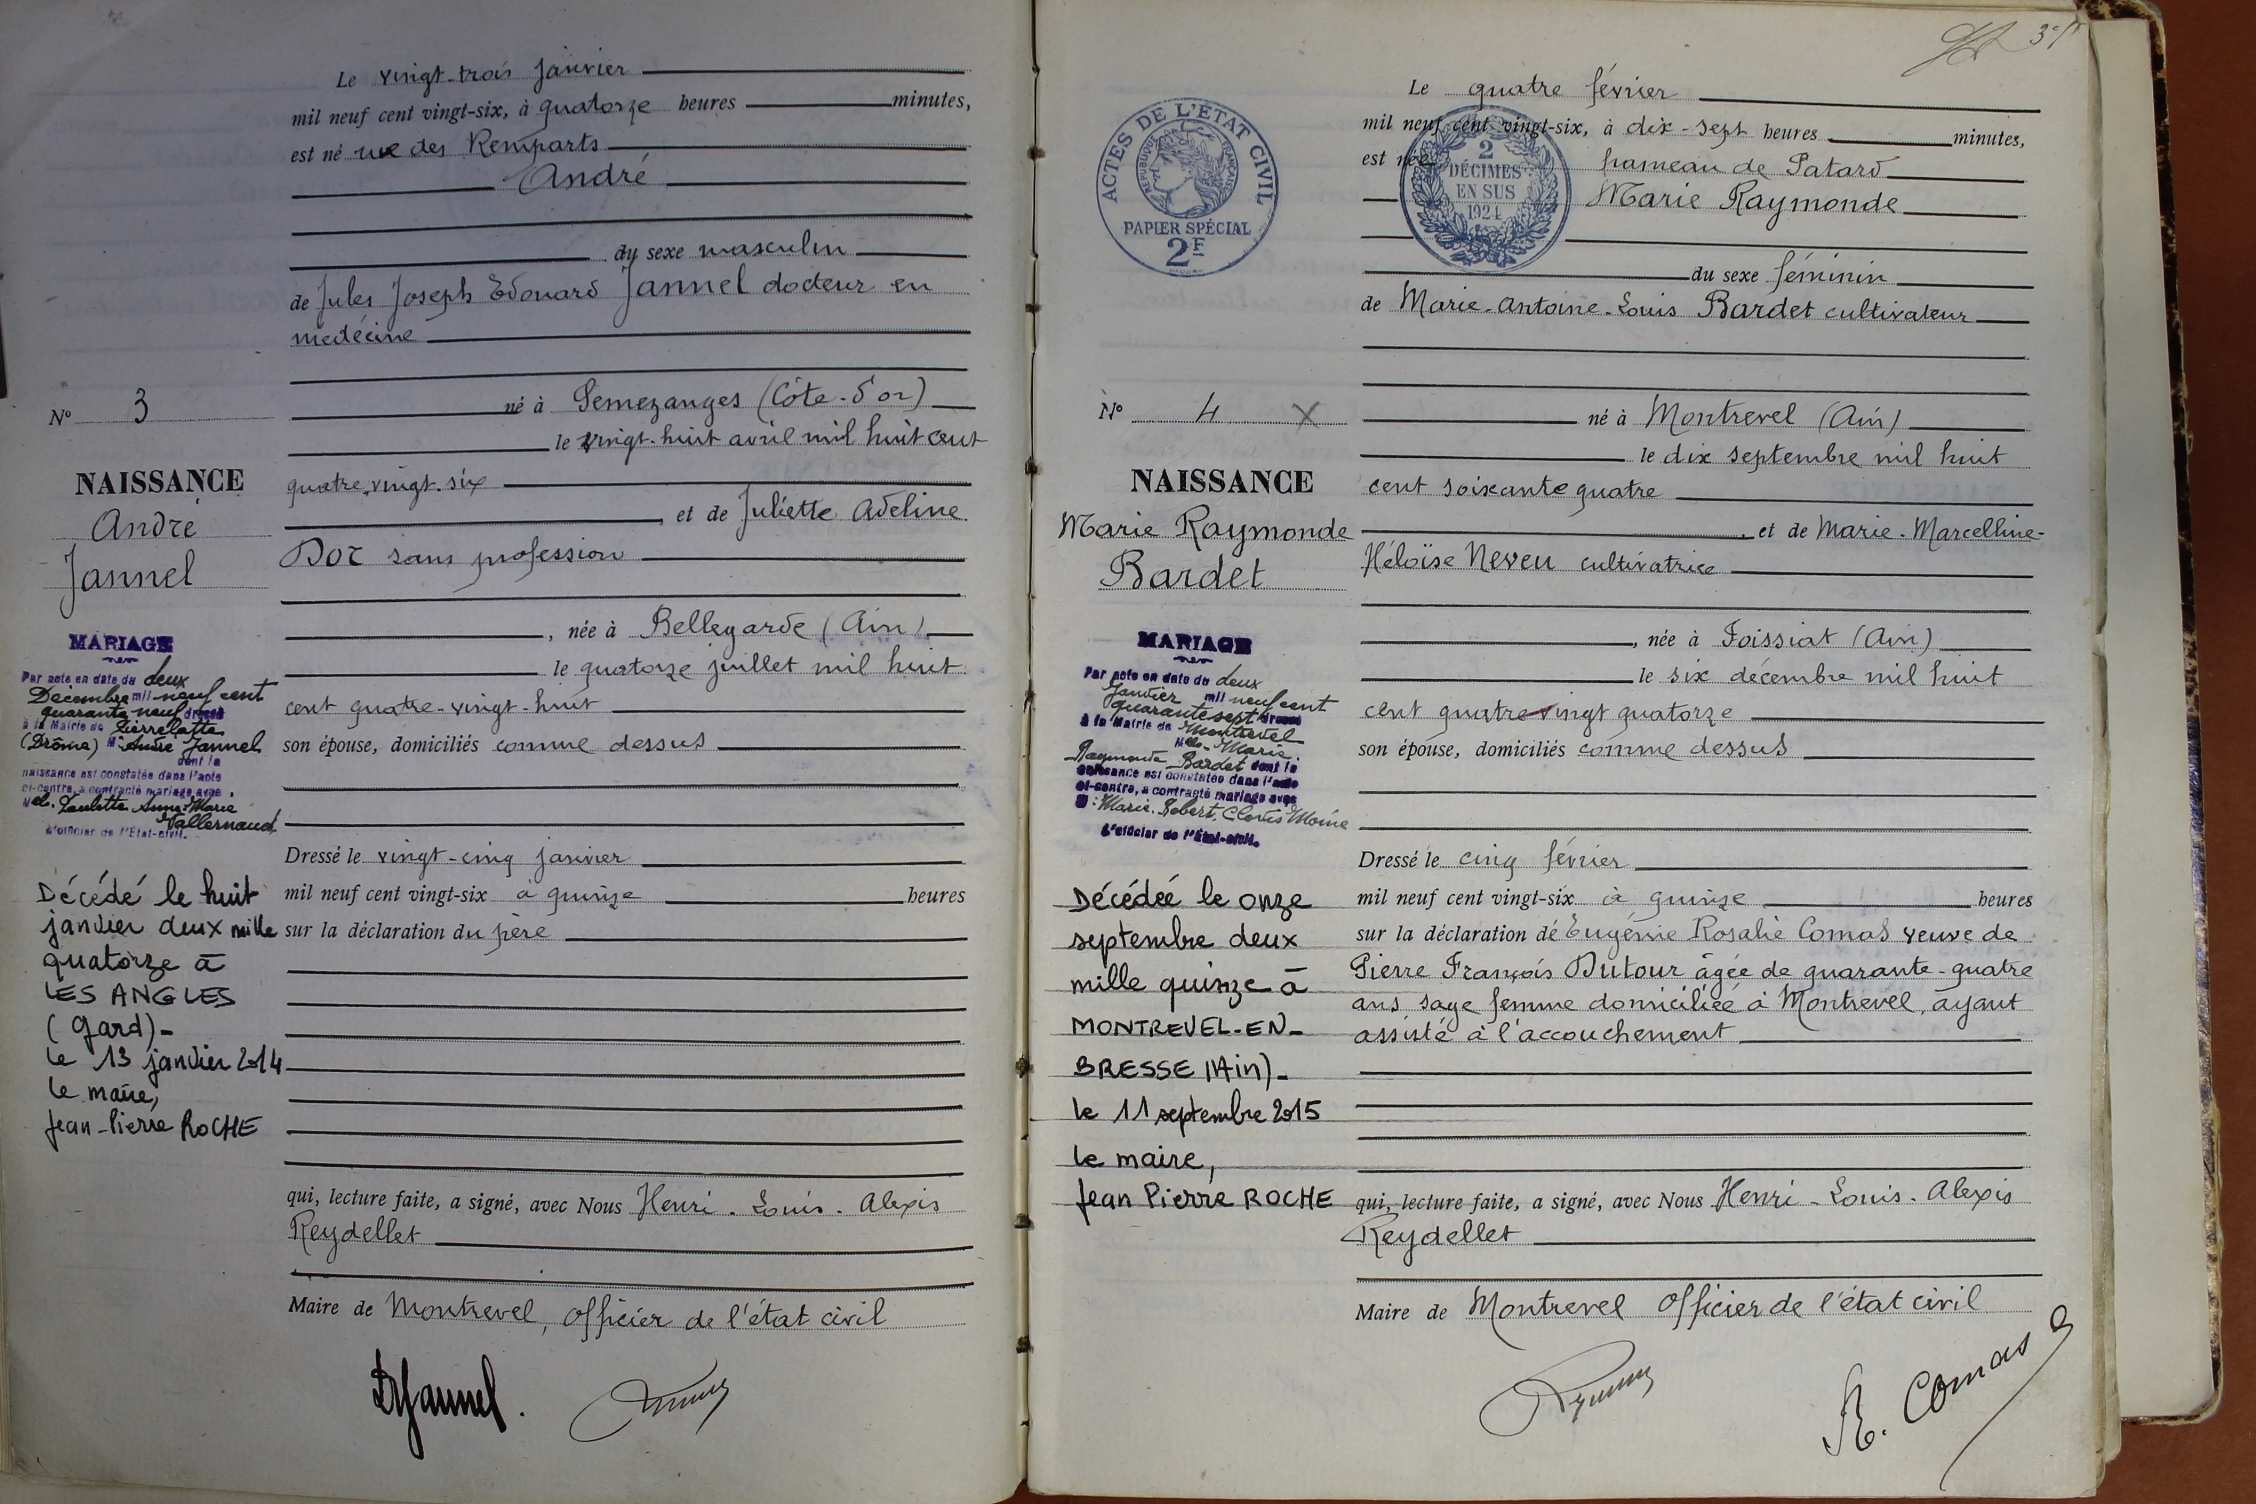 Le vingt-trois janvier
mil neuf cent vingt-six, à quatorze heures minutes,
est né rue des Remparts
André
du sexe masculin
de Jules Joseph Edouard Jannel docteur en
médécine
né à Semezanges (Côte-d'or)
le vingt-huit avril mil huit cent
quatre-vingt-six
et de Juliette Adeline
Doc sans profession
, née à Bellegarde (Ain)
le quatorze juillet mil huit
cent quatre-vingt-huit
son épouse, domiciliés comme dessus
Dressé le vingt-cinq janvier
mil neuf cent vingt-six à quinze heures
sur la déclaration du père
qui, lecture faite, a signé, avec Nous Henri-Louis-Alexis
Reydellet
Maire de Montrevel, officier de l'état civil
DrJannel.
N° 3
NAISSANCE
André
Jannel
MARIAGE
Par acte en date du deux
Décembre mil neuf cent
quarante neuf dressé
à la Mairie de Pierrelatte
(Drôme) Mr André Jannel
dont la
naissance est constatée dans l'acte
ci-contre, a contracté mariage avec
Melle Paulette Anne-Marie
Vallernaud
L'officier de l'État-civil.
Décédé le huit
janvier deux mille
quatorze à
LES ANGLES
(Gard)-
le 13 janvier 2014
le maire,
Jean-Pierre ROCHE
ACTES DE L'ÉTAT CIVIL
RÉPUBLIQUE FRANÇAISE
PAPIER SPÉCIAL
2F
2
DÉCIMES
EN SUS
1924
Le quatre février
mil neuf cent vingt-six, à dix-sept heures minutes,
est née hameau de Patard
Marie Raymonde
du sexe féminin
de Marie-Antoine-Louis Bardet cultivateur
né à Montrevel (Ain)
le dix septembre mil huit
cent soixante quatre
et de Marie-Marcelline-
Héloïse Neveu cultivatrice
, née à Foissiat (Ain)
le six décembre mil huit
cent quatre-vingt quatorze
son épouse, domiciliés comme dessus
Dressé le cinq février
mil neuf cent vingt-six à quinze heures
sur la déclaration de Eugénie Rosalie Comas veuve de
Pierre François Dutour âgée de quarante-quatre
ans sage femme domiciliée à Montrevel, ayant
assisté à l'accouchement
qui, lecture faite, a signé, avec Nous Henri-Louis-Alexis
Reydellet
Maire de Montrevel officier de l'état civil
R. Comas
N° 4 X
NAISSANCE
Marie Raymonde
Bardet
MARIAGE
Par acte en date du deux
Janvier mil neuf cent
quarante sept dressé
à la Mairie de Montrevel
Melle Marie
Raymonde Bardet dont la
naissance est constatée dans l'acte
ci-contre, a contracté mariage avec
M: Marie. Robert. Clovis Moine
L'officier de l'État-civil.
Décédée le onze
septembre deux
mille quinze à
MONTREVEL-EN-
BRESSE (Ain)-
le 11 septembre 2015
le maire,
Jean Pierre ROCHE